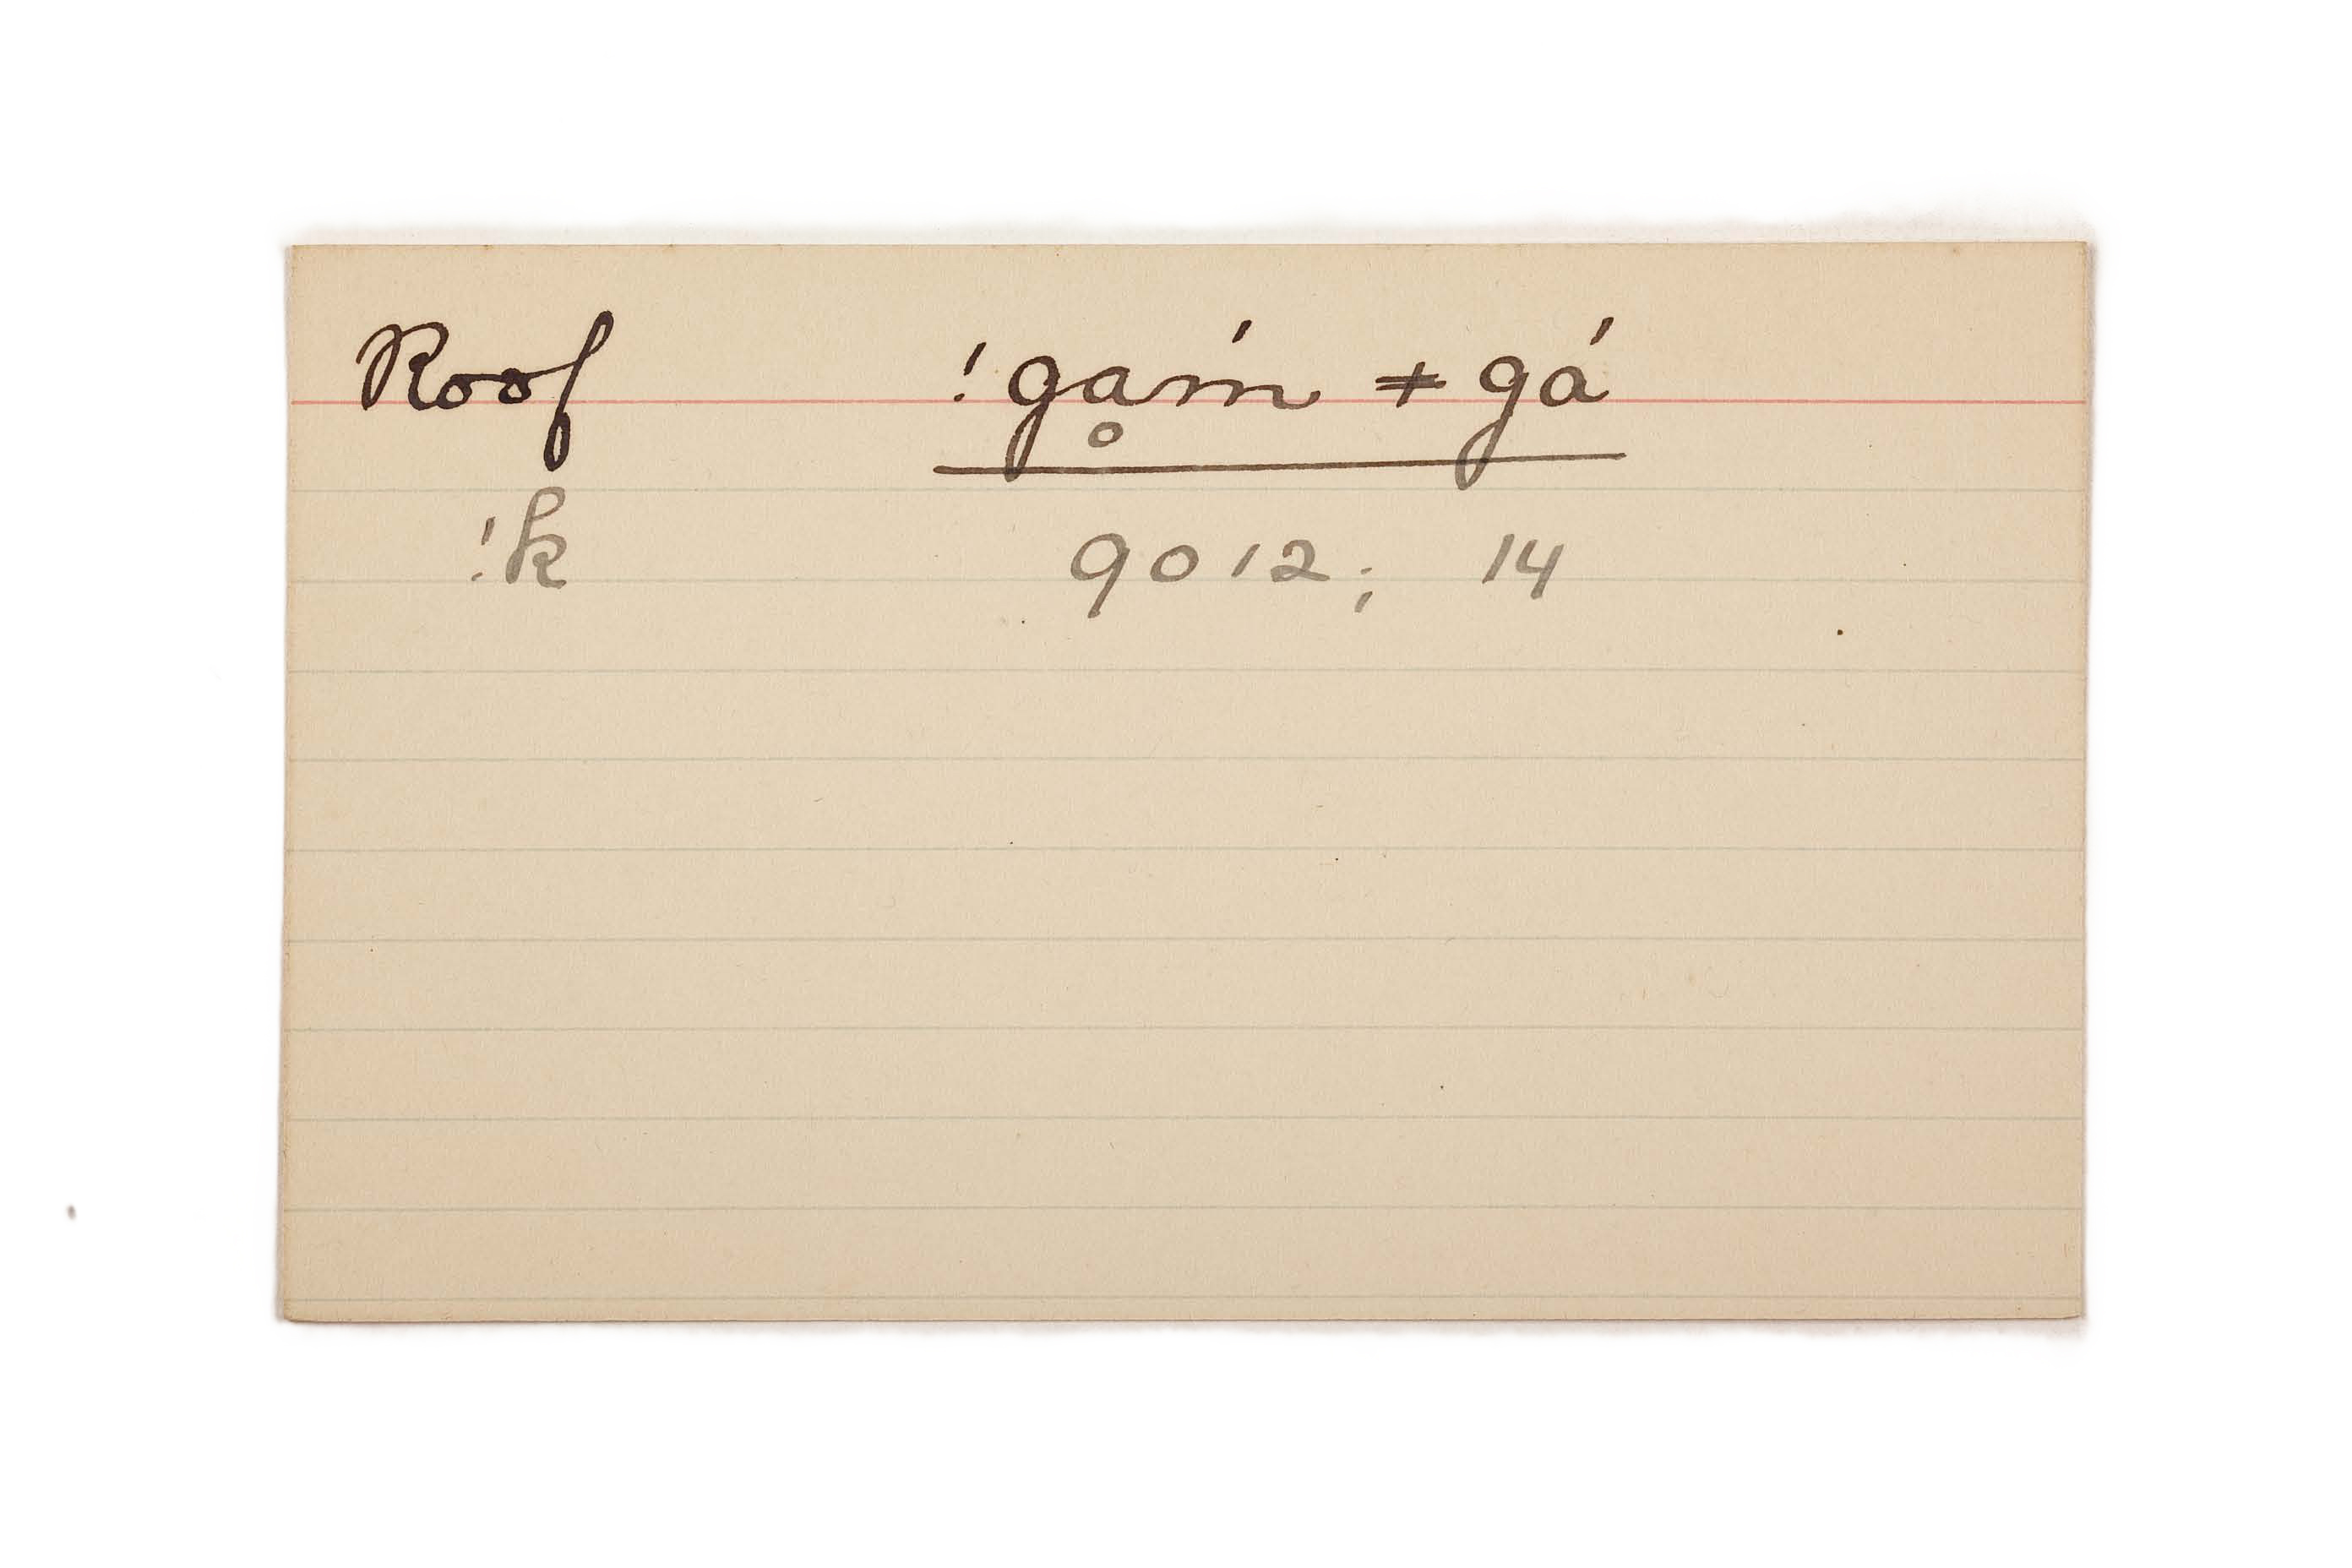 Roof !gḁ̊ḿ ǂgá
!k 9012; 14